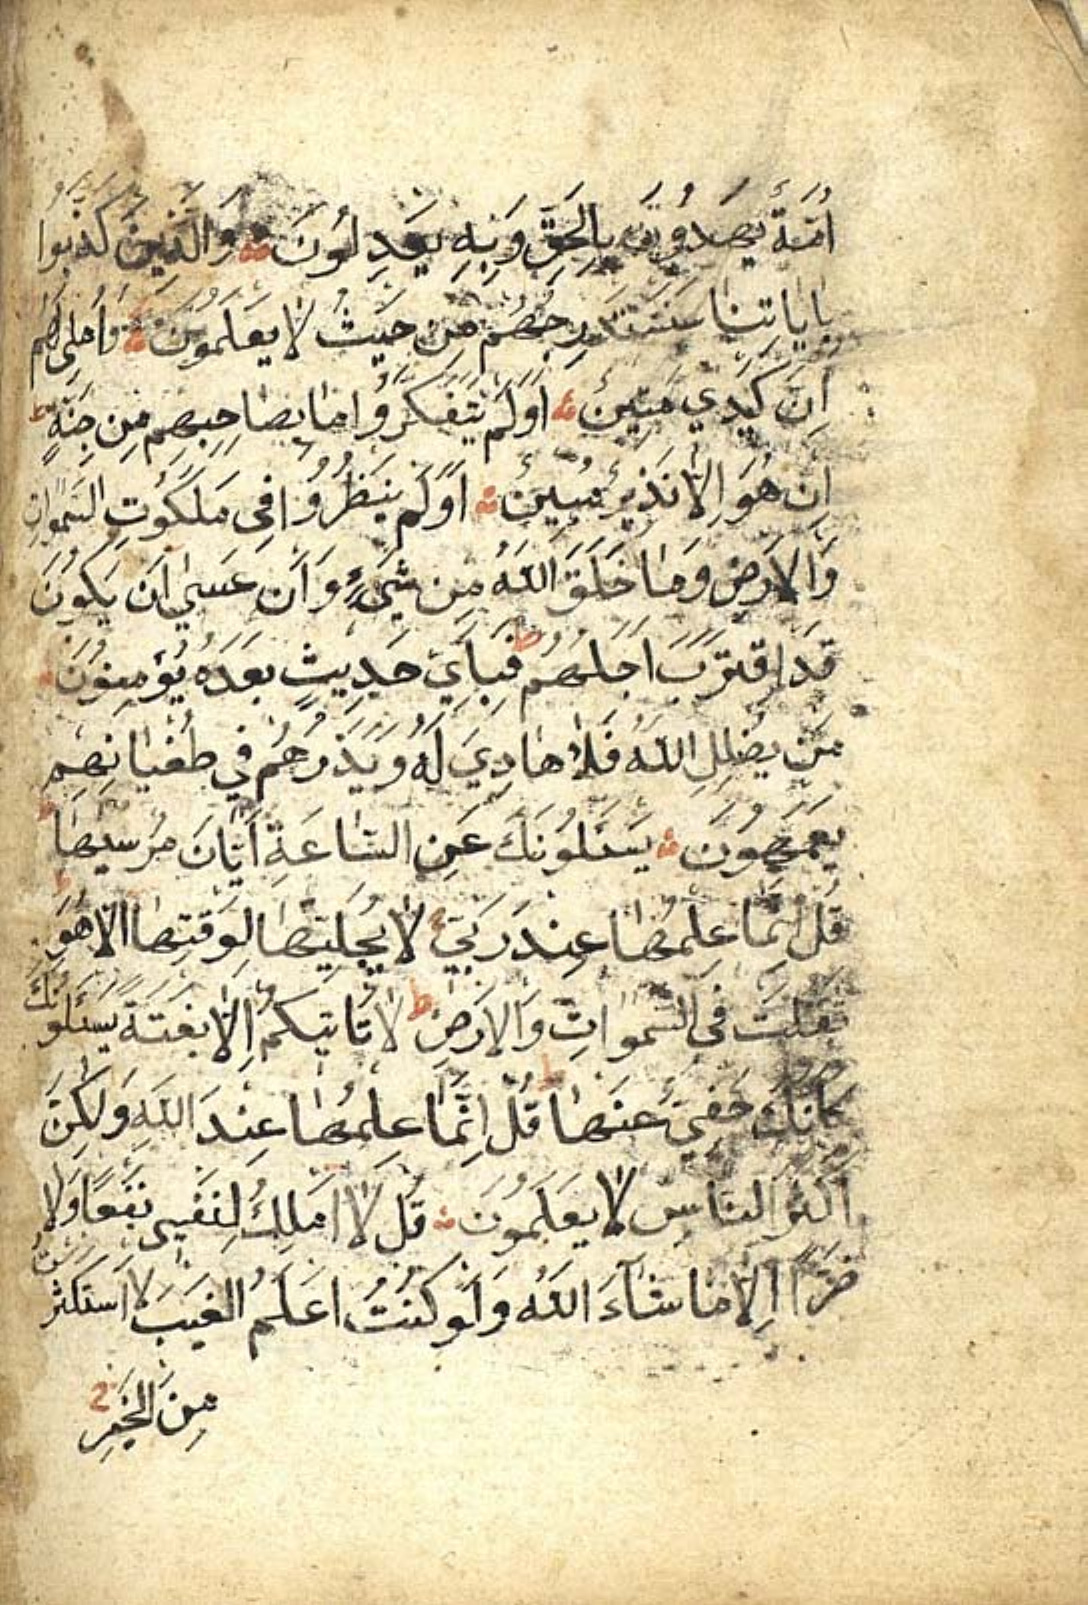 أُمَّةٌ يَهْدُونَ بِالْحَقِّ وَبِهِ يَعْدِلُونَ وَالَّذِينَ كَذَّبُوا
بِاٰيَاتِنَا سَنَسْتَدْرِجُهُمْ مِنْ حَيْثُ لَا يَعْلَمُونَ وَأُمْلِي لَهُمْ
اِنَّ كَيْدِي مَتِينٌ اَوَلَمْ يَتَفَكَّرُوا مَا بِصَاحِبِهِمْ مِنْ جِنَّةٍ
اِنْ هُوَ اِلَّا نَذِيرٌ مُبِينٌ اَوَلَمْ يَنْظُرُوا فِي مَلَكُوتِ السَّمٰوَاتِ
وَالْاَرْضِ وَمَا خَلَقَ اللّٰهُ مِنْ شَيْءٍ وَاَنْ عَسٰى اَنْ يَكُونَ
قَدِ اقْتَرَبَ اَجَلُهُمْ ط فَبِاَيِّ حَدِيثٍ بَعْدَهُ يُؤْمِنُونَ
مَنْ يُضْلِلِ اللّٰهُ فَلَا هَادِيَ لَهُ وَيَذَرُهُمْ فِي طُغْيَانِهِمْ
يَعْمَهُونَ يَسْـَٔلُونَكَ عَنِ السَّاعَةِ اَيَّانَ مُرْسٰيهَا ط
قُلْ اِنَّمَا عِلْمُهَا عِنْدَ رَبِّي لَا يُجَلِّيهَا لِوَقْتِهَا اِلَّا هُوَ ط
ثَقُلَتْ فِي السَّمٰوَاتِ وَالْاَرْضِ ط لَا تَأْتِيكُمْ اِلَّا بَغْتَةً يَسْـَٔلُونَكَ
كَاَنَّكَ حَفِيٌّ عَنْهَا ط قُلْ اِنَّمَا عِلْمُهَا عِنْدَ اللّٰهِ وَلٰكِنَّ
اَكْثَرَ النَّاسِ لَا يَعْلَمُونَ قُلْ لَا اَمْلِكُ لِنَفْسِي نَفْعًا وَلَا
ضَرًّا اِلَّا مَا شَاءَ اللّٰهُ وَلَوْ كُنْتُ اَعْلَمُ الْغَيْبَ لَاسْتَكْثَرْتُ
مِنَ الْخَيْرِ